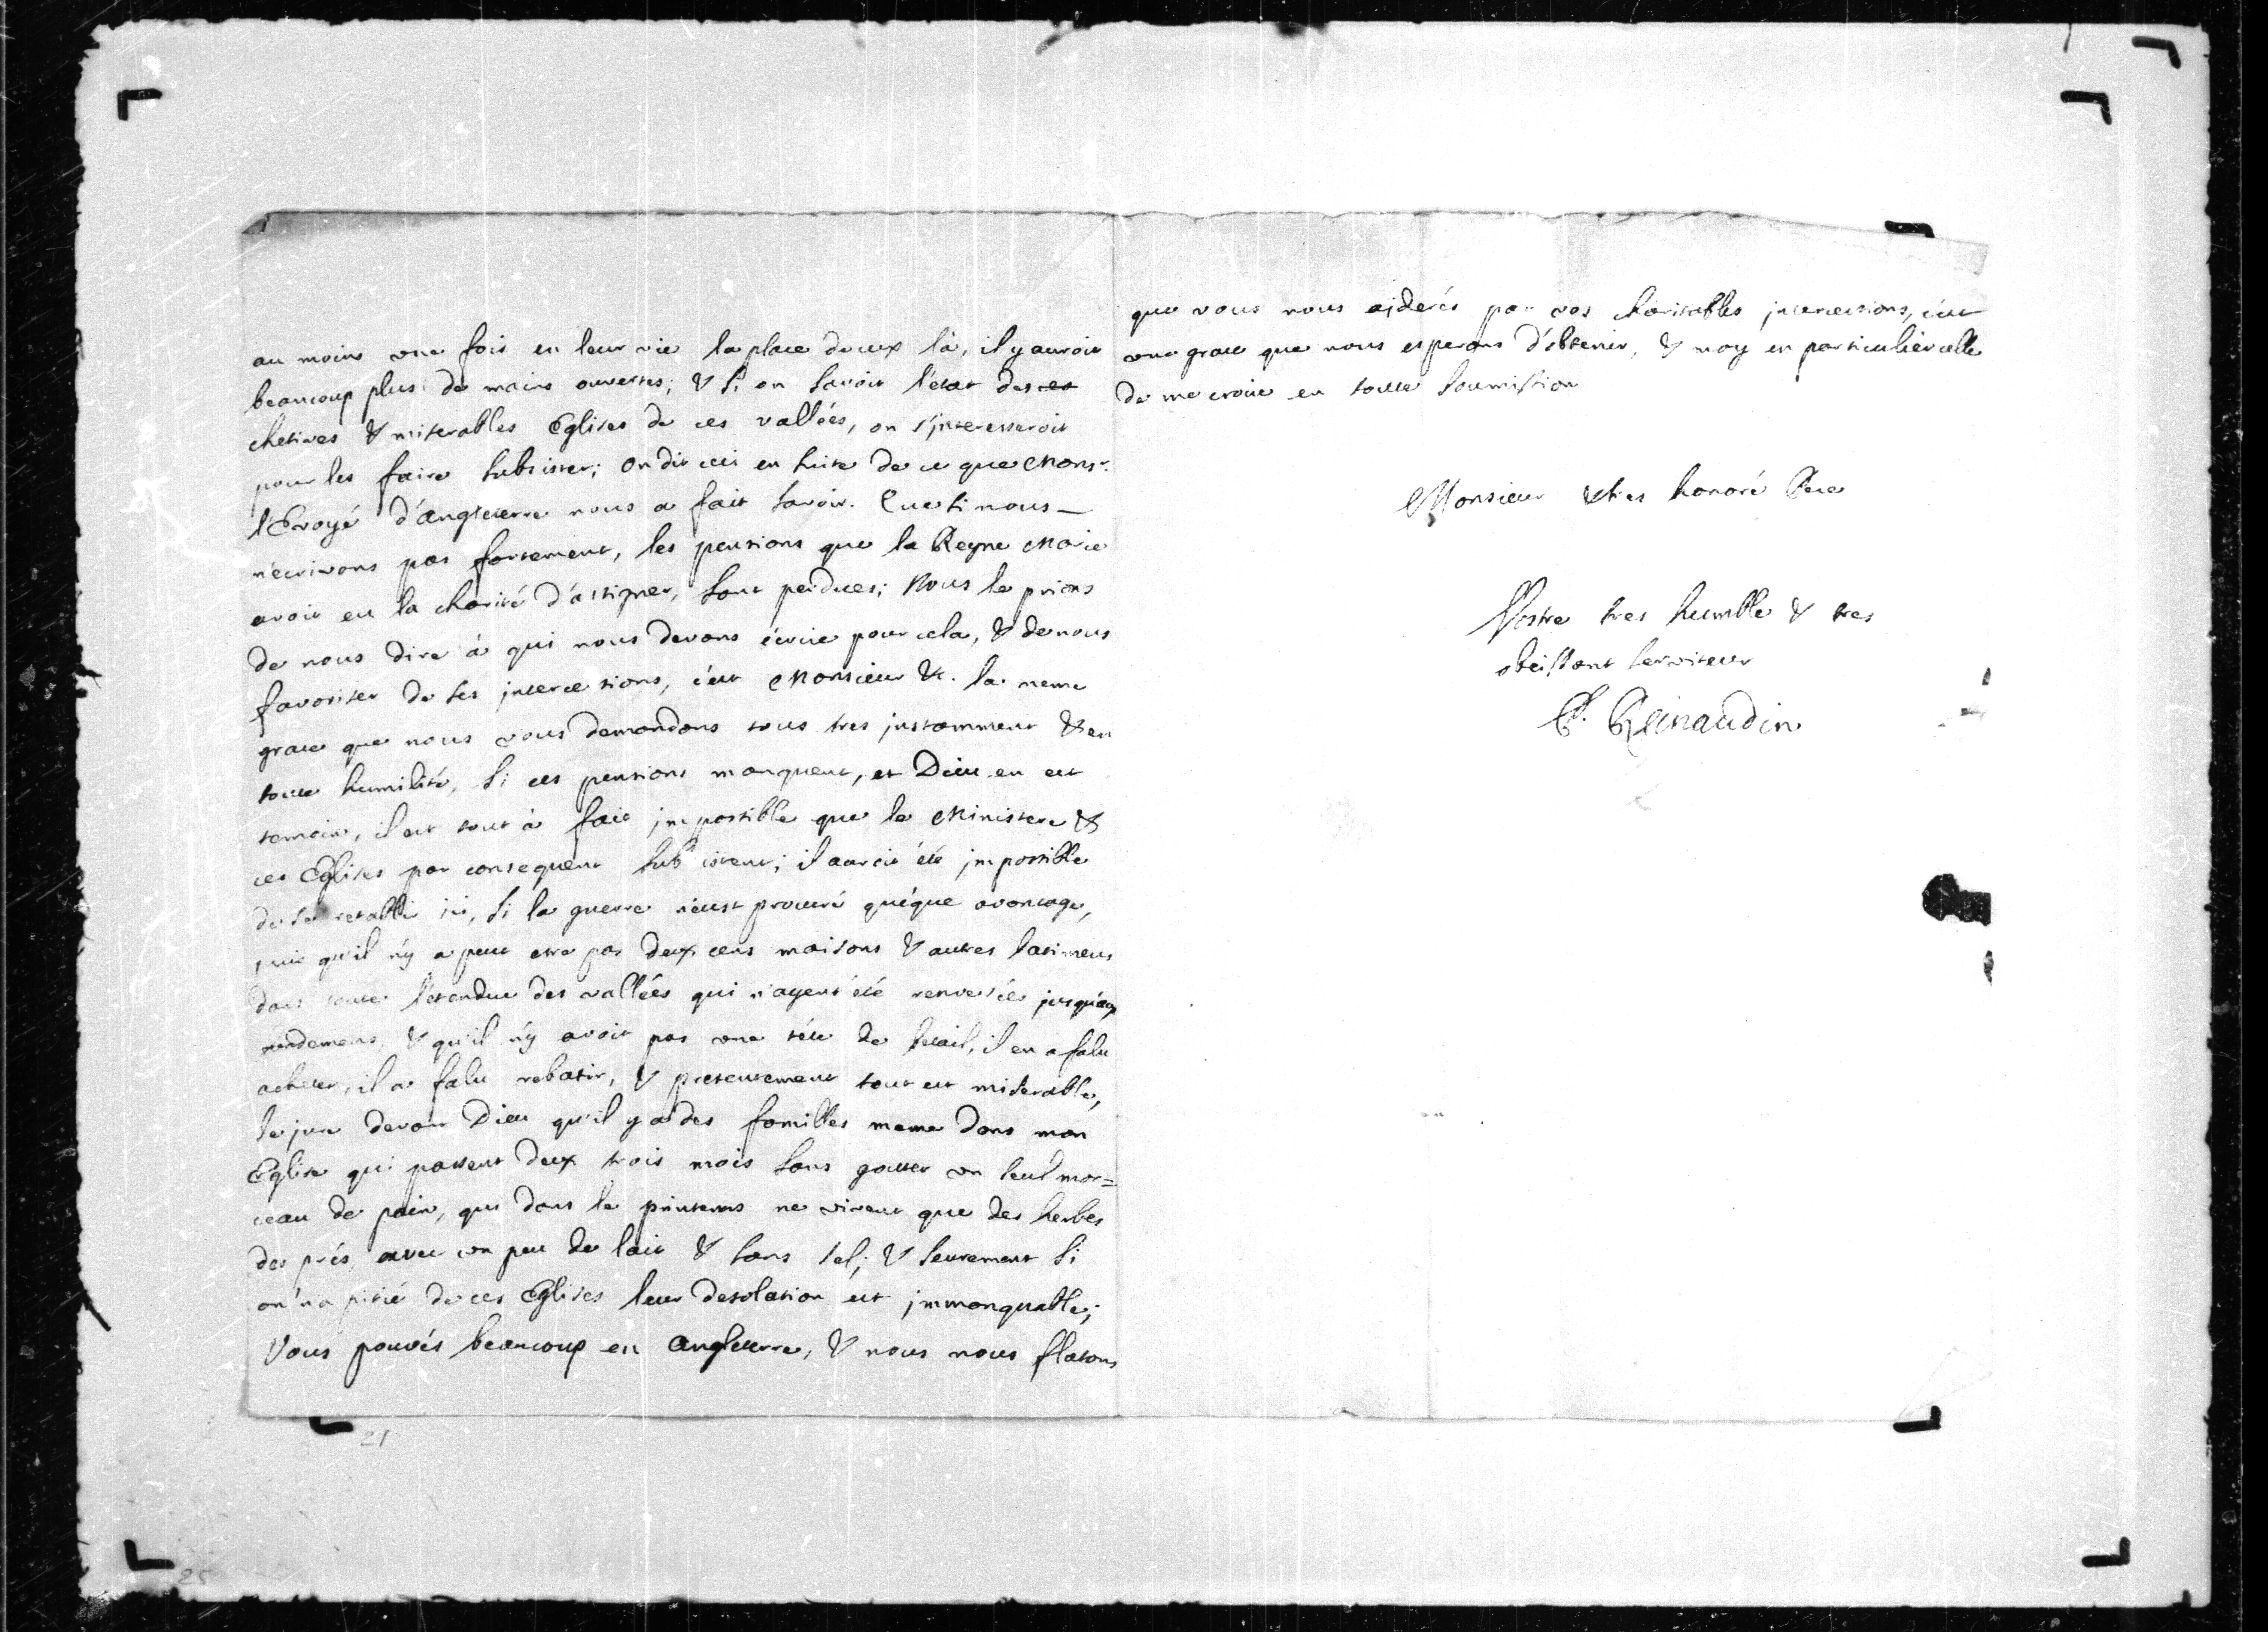 au moins une fois en leur vie la place de ceux là, il y auroit
beaucoup plus de mains ouvertes; & si on savoit l'etat des
chetives & miserables Eglises de ces vallées, on s'jnteresseroit
pour les faire subsister; on dit ceci en suite de ce que Monsr.
l'Envoyé d'angleterre nous a fait savoir. Que si nous
n'ecrivons pas fortement, les pensions que la Reyne Marie
avoit eu la charité d'assigner, sont perdues; Nous le prions
de nous dire à qui nous devons écrire pour cela, & de nous
favoriser de ses jntercessions, c'est Monsieur &. la meme
grace que nous vous demandons tous tres jnstamment & en
toute humilité, si ces pensions manquent, et Dieu en est
temoin, il est tout à fait jmpossible que le Ministere &
ces Eglises par consequent subsistent; il auroit été jmpossible
de se retablir ici, si la guerre n'eust procuré quéque avantage,
puis qu'il n'y a peut etre pas deux cens maisons & autres batimens
dans toute l'etendue des vallées qui n'ayent été renversées jusqu'aux
fondemens, & qu'il n'y avoit pas une téte de betail, il en a falu
acheter, il a falu rebatir, & presentement tout est miserable,
Je jure devant Dieu qu'il y a des familles meme dans mon
Eglise qui passent deux trois mois sans gouter un seul mor=
ceau de pain, qui dans le printems ne vivent que des herbes
des prés, avec un peu de lait & sans sel; & seurement si
on n'a pitié de ces Eglises leur desolation est jmmanquable;
Vous pouvés beaucoup en angleterre, & nous nous flatons
que vous nous aiderés par vos charitables jntercessions, c'est
une grace que nous esperons d'obtenir, & moy en particulier celle
de me croire en toute soumission
Monsieur & tres honoré Pere
Vostre tres humble & tres
obeissant serviteur
P. Reinaudin
21
25